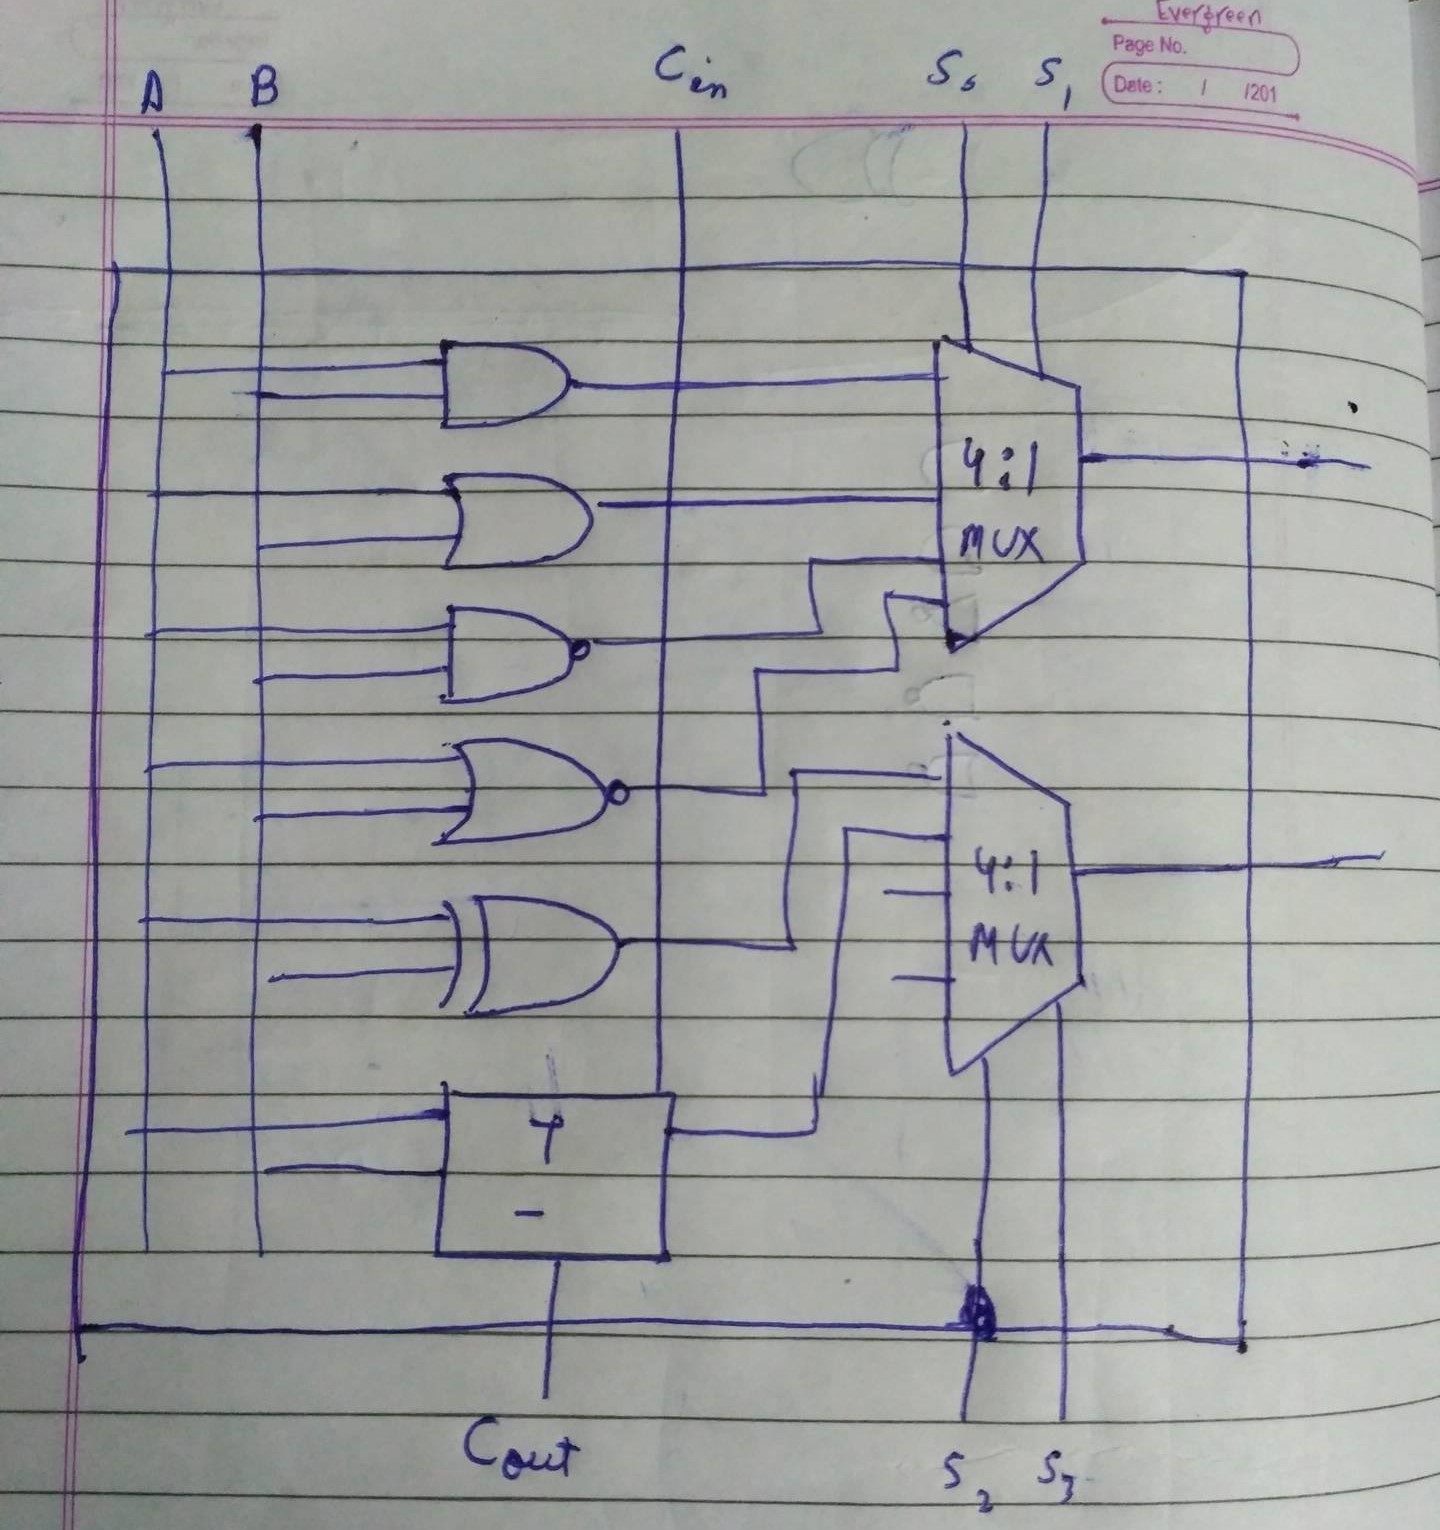 Evergreen
Page No.
Date: / /201
A B Cin S0 S1
4:1
MUX
4:1
MUX
+
-
Cout
S2 S3